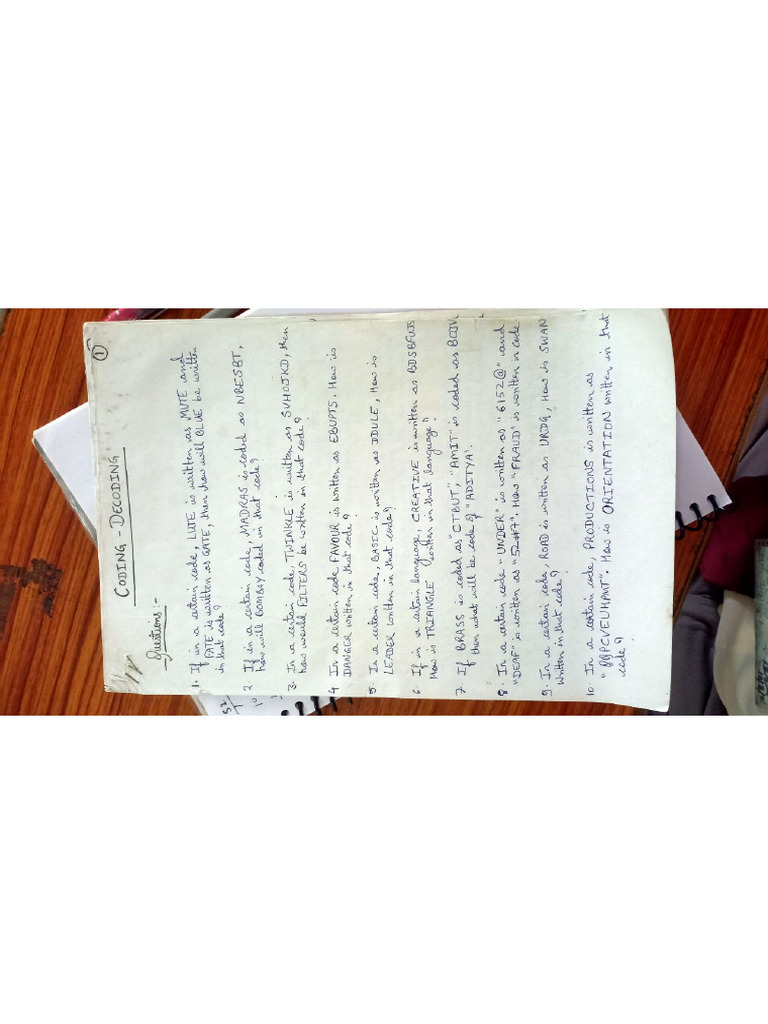 ①
CODING - DECODING
Questions:-
1. If in a certain code, LUTE is written as MUTE and
FATE is written as GATE, then how will BLUE be written
in that code?
2. If in a certain code, MADRAS is coded as NBESBT,
how will BOMBAY coded in that code?
3. In a certain code, TWINKLE is written as SVHOJKD, then
how would FILTERS be written in that code?
4 In a certain code FAVOUR is written as EBUPTS. How is
DANGER written in that code?
5. In a certain code, BASIC is written as DDULE, How is
LEADER written in that code?
6 If in a certain language, CREATIVE is written as BDSBFUJS
How is TRIANGLE written in that language?
7. If BRASS is coded as "CTBUT", "AMIT" is coded as BOJV
then what will be code of "ADITYA".
8. In a certain code "UNDER" is written as "6152@" and
"DEAF" is written as "52#7". How "FRAUD" is written in code
9. In a certain code, ROAD is written as URDG, How is SWAN
written in that code?
10. In a certain code, PRODUCTIONS is written as
"QQPCVEUHPMT". How is ORIENTATION written in that
code?